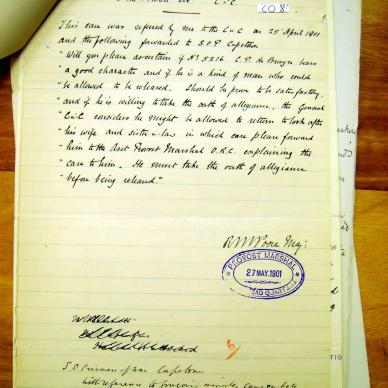 C-C
CO 8
This case was referred by me to the C in C on 25 April 1901
and the following forwarded to S.O.P. Capetown
"Will you please ascertain if No 5316 C.P. de Bruyn bears
"a good character and if he is a kind of man who could
"be allowed to be released. Should he prove to be satisfactory
"and if he is willing to take the oath of allegiance, the General
"C in C considers he might be allowed to return to look after
"his wife and sister in law in which case please forward
"him to the Asst Provost Marshal O.R.C. explaining the
"case to him. He must take the oath of allegiance
"before being released"
R M Poore Maj:
PROVOST MARSHAL
27 MAY. 1901
HEAD QUARTERS
S.O. Prisoners of War Capetown
With reference to foregoing minute, can